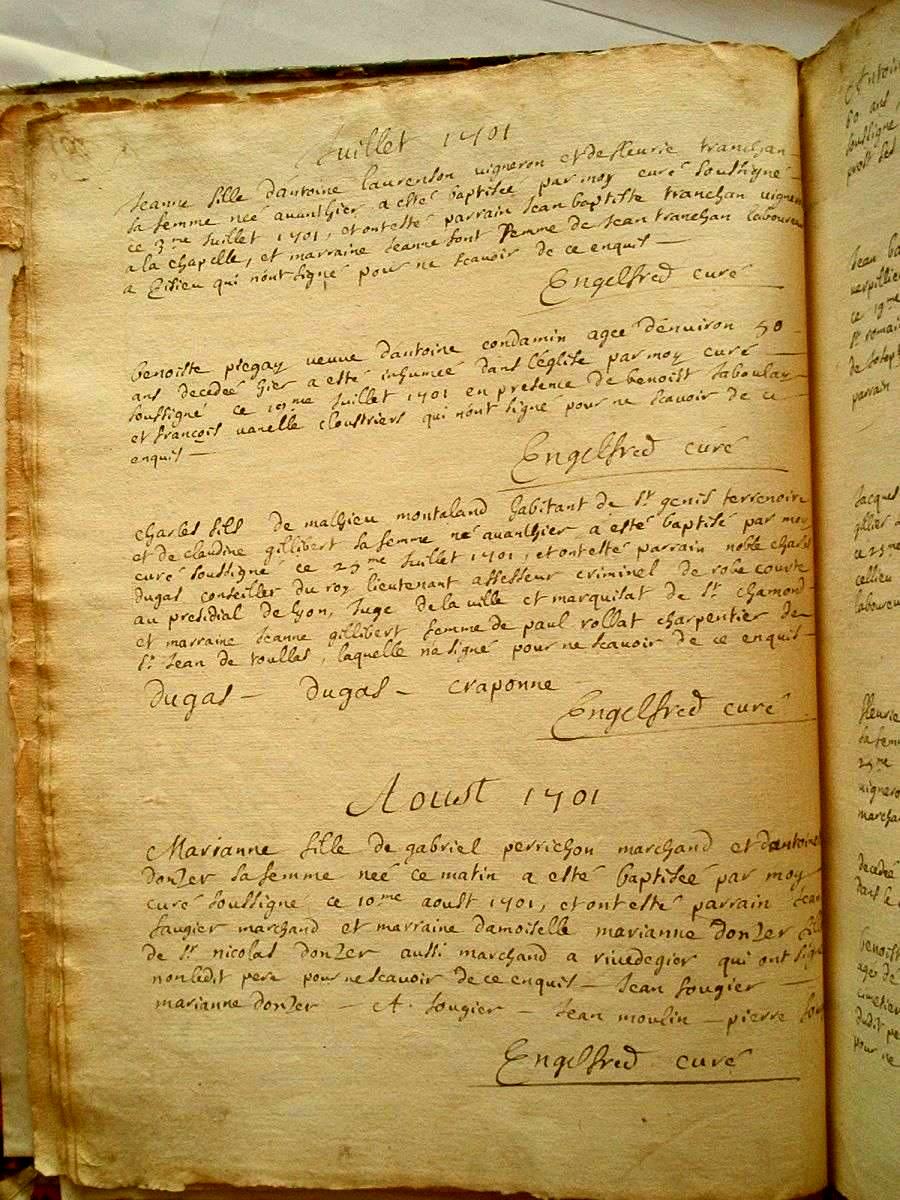 Juillet 1701
Jeanne fille d'antoine laurenson vigneron et de fleurie tranchan
sa femme neé avanthier a esté baptiseé par moy curé soussigné
ce 3me Juillet 1701, et ont esté parrain Jean baptiste tranchan vigneron
a la chapelle, et marraine Jeanne font femme de Jean tranchan laboureur
a qui n'ont signé pour ne scavoir de ce enquis —
Engelfred curé
benoiste piegay veuve d'antoine condamin agee d'environ 50
ans decedeé hier a esté inhumeé dans l'église par moy curé —
soussigné ce 19me Juillet 1701 en presence de benoist
et françois vanelle cloustriers qui n'ont signé pour ne scavoir de ce
enquis —
Engelfred curé
charles fils de mathieu montaland habitant de St genis terrenoire
et de claudine gillibert sa femme né avanthier a esté baptisé par moy
curé soussigné ce 29me Juillet 1701, et ont esté parrain noble charles
dugas conseiller du roy lieutenant assesseur criminel de robe courte
au presidial de lyon, Juge de la ville et marquisat de St chamond
et marraine Jeanne gillibert femme de paul rollat charpentier de
St Jean de toullas, laquelle n'a signé pour ne scavoir de ce enquis —
Dugas — Dugas — craponne
Engelfred curé
Aoust 1701
Marianne fille de gabriel perrichon marchand et d'antoinet
donzer sa femme neé ce matin a esté baptiseé par moy
curé soussigné ce 10me aoust 1701, et ont esté parrain Jean
fougier marchand et marraine damoiselle marianne donzer fille
de Sr nicolas donzer aussi marchand a rivedegier qui ont signé
non ledit pere pour ne scavoir de ce enquis — Jean fougier —
marianne donzer — A. fougier — Jean moulin — pierre
Engelfred curé
60 ans
soussigné
Jean ba
ce 19me
St romain
parrain
Jacques
ce 25me
cellieu
laboureu
fleurie
sa femm
vigneron
marchan
decedé
dans le
benoist
pour ne